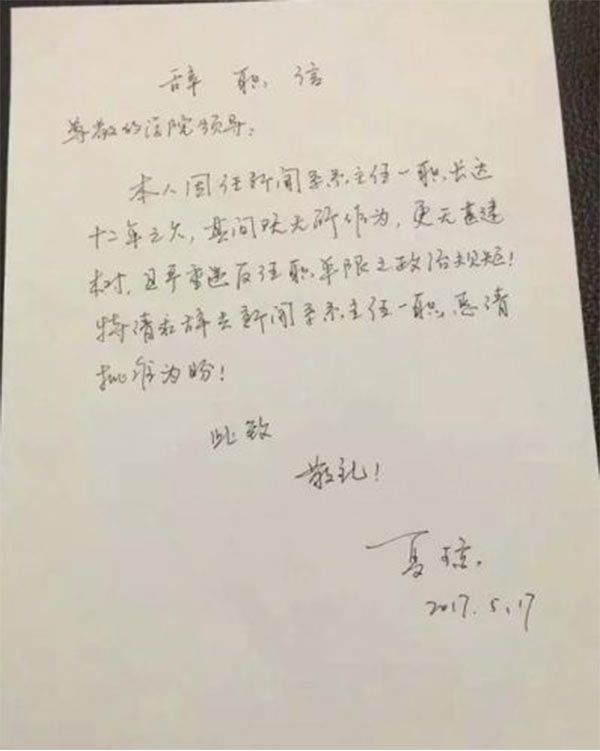 辞职信
尊敬的法院领导:
本人因任新闻系系主任一职长达
十二年之久,其间既无所作为,更无甚建
树,且严重违反任职年限之政治规矩!
特请求辞去新闻系系主任一职,恳请
批准为盼!
此致
敬礼!
夏琼
2017.5.17